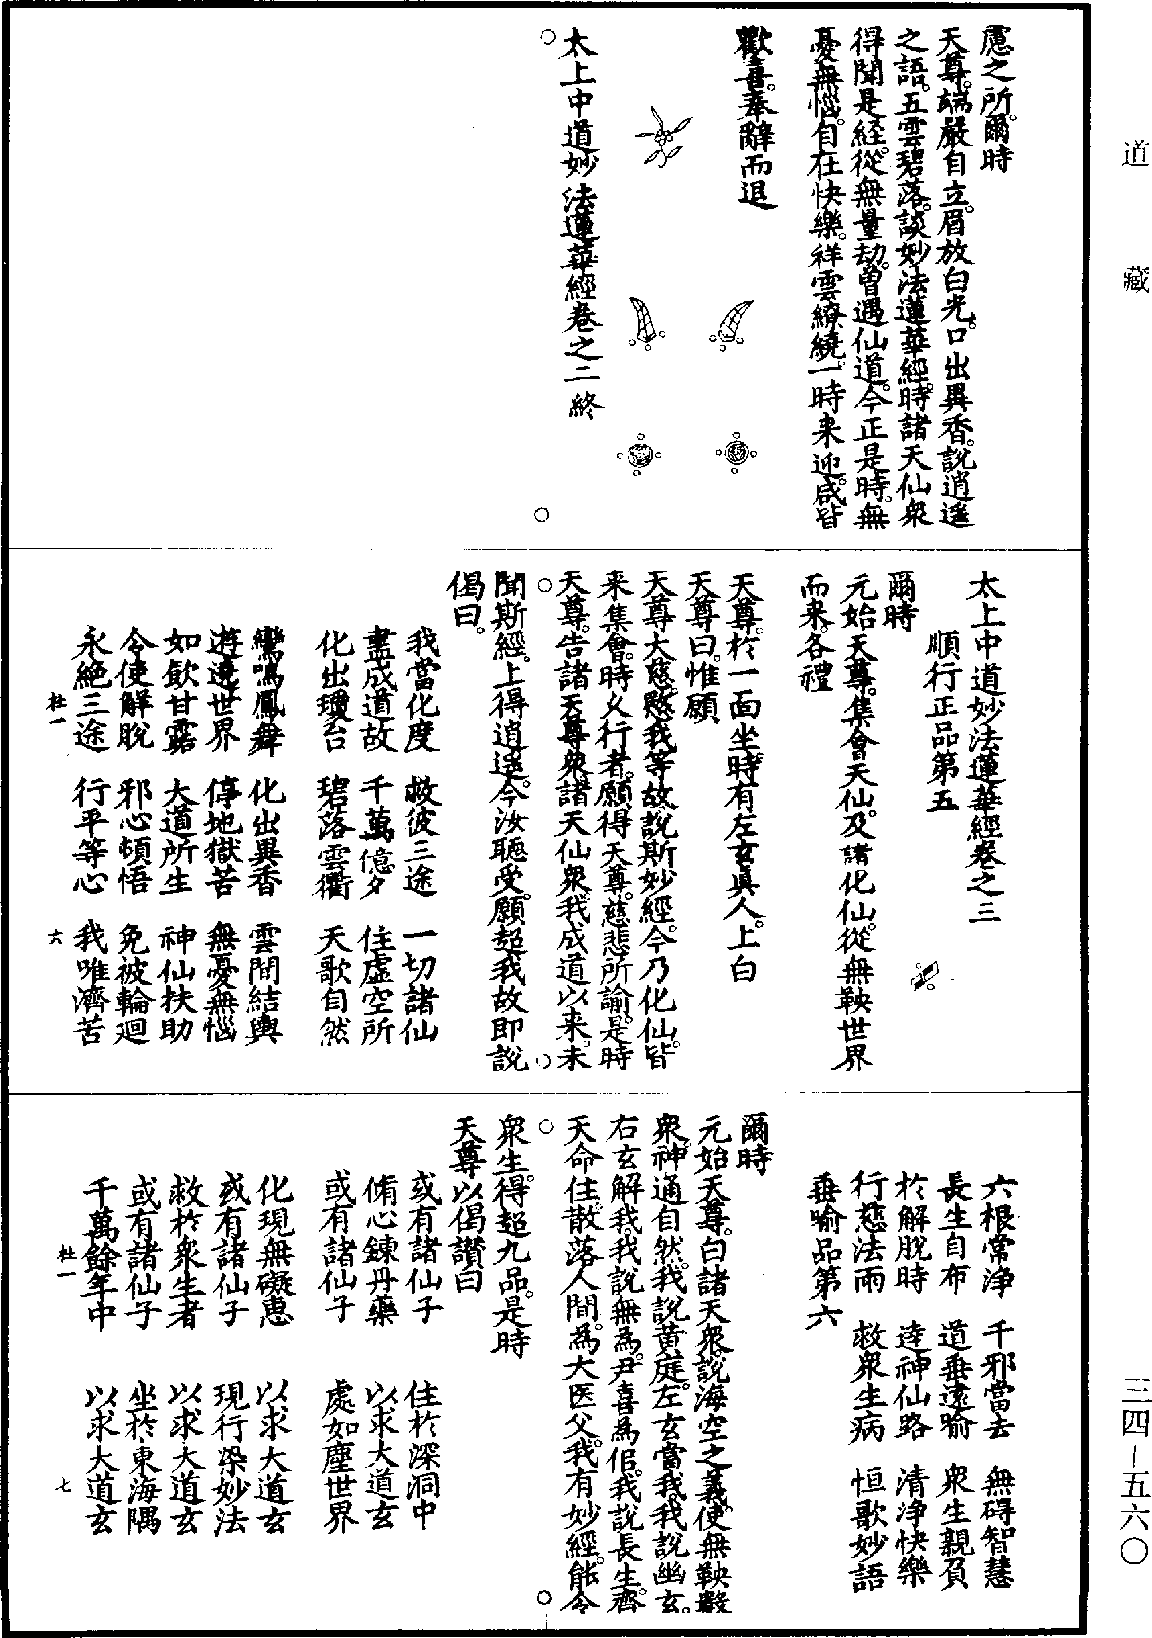 道藏
慮之所。爾時
天尊。端嚴自立。眉放白光。口出異香。說逍遥
之語。五雲碧落。談妙法蓮華經。時諸天仙衆
得聞是經。從無量劫。曾遇仙道。今正是時。無
憂無惱。自在快樂。祥雲繚繞。一時来迎。咸皆
歡喜。奉辭而退
太上中道妙法蓮華經卷之二終
太上中道妙法蓮華經卷之三
順行正品第五
爾時
元始天尊。集會天仙。及諸化仙。從無鞅世界
而来。各禮
天尊。於一面坐。時有左玄真人。上白
天尊曰。惟願
天尊大慈。愍我等故。說斯妙經。今乃化仙。皆
来集會。時久行者。願得天尊。慈悲所諭。是時
天尊。告諸天尊衆。諸天仙衆。我成道以来。未
聞斯經。上得逍遥。今汝聽受。願超我故。即說
偈曰。
我當化度 救彼三途 一切諸仙
盡成道故 千萬億夕 住虛空所
化出瓊台 碧落雲衢 天歌自然
鸞鳴鳳舞 化出異香 雲間結輿
遊遶世界 停地獄苦 無憂無惱
如飲甘露 大道所生 神仙扶助
令使解脫 邪心頓悟 免被輪迴
永絕三途 行平等心 我唯濟苦
杜一 六
六根常淨 千邪當去 無碍智慧
長生自布 道垂遠喻 衆生親覓
於解脫時 逹神仙路 清淨快樂
行慈法雨 救衆生病 恒歌妙語
垂喻品第六
爾時
元始天尊。白諸天衆。說海空之義。使無鞅數
衆。神通自然。我說黃庭。左玄當我。我說幽玄。
右玄解我。我說無為。尹喜為侶。我說長生。齊
天命住。散落人間。為大医父。我有妙經。能令
衆生。得超九品。是時
天尊以偈讃曰
或有諸仙子 住於深洞中
脩心鍊丹藥 以求大道玄
或有諸仙子 處如塵世界
化現無礙恵 以求大道玄
或有諸仙子 現行染妙法
救於衆生者 以求大道玄
或有諸仙子 坐於東海隅
千萬餘年中 以求大道玄
杜一 七
三四－五六〇